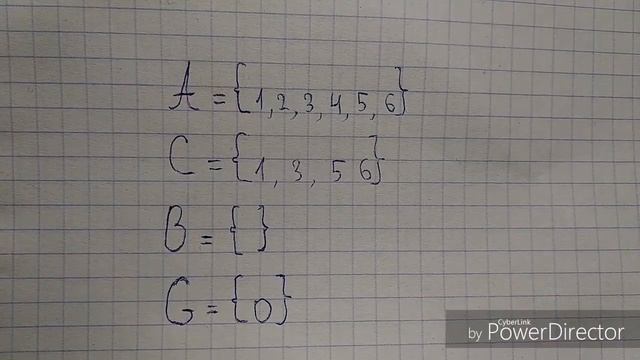 A = {1, 2, 3, 4, 5, 6}
C = {1, 3, 5 6}
B = { }
G = {0}
CyberLink
by PowerDirector